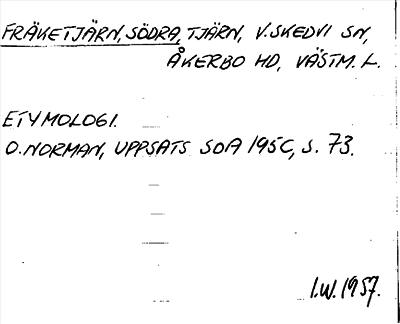 FRÄKETJÄRN, SÖDRA, TJÄRN, V. SKEDVI SN,
ÅKERBO HD, VÄSTM. L.
ETYMOLOGI.
O. NORMAN, UPPSATS SOA 195C, S. 73.
I.W. 1957.